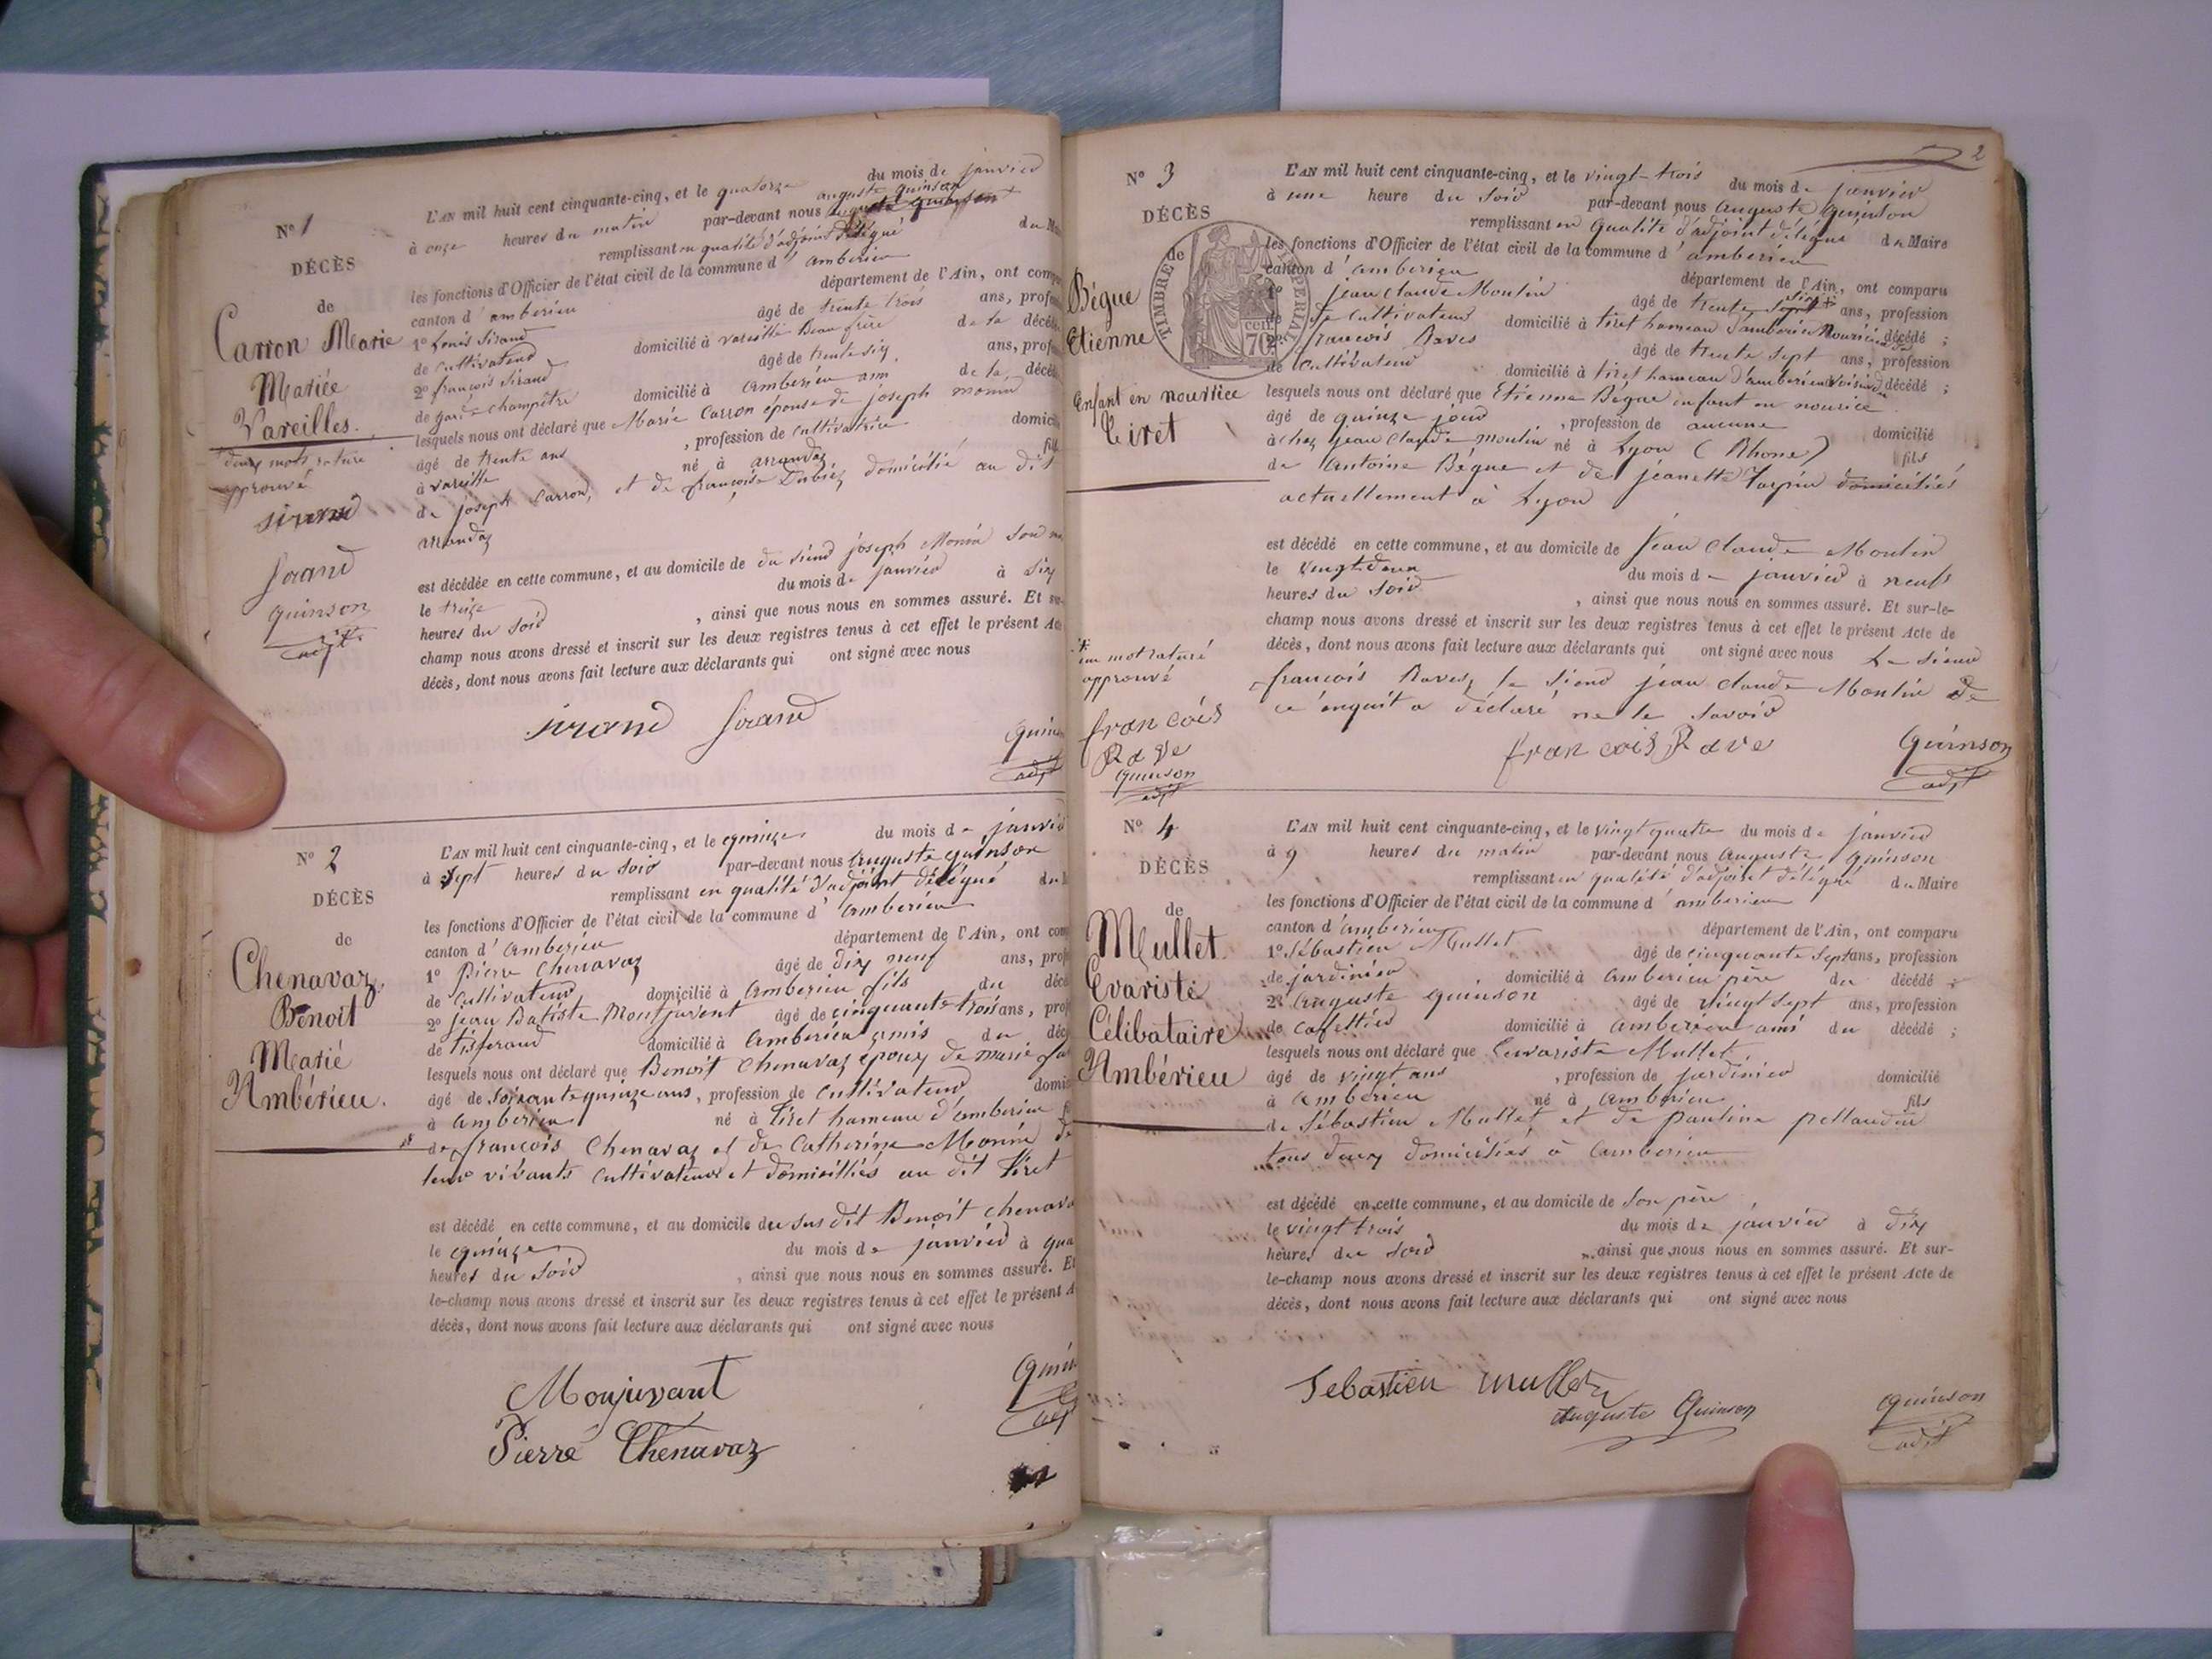 N° 1
DÉCÈS
de
Carron Marie
Mariée
Vareilles.
deux mots rature
approuvé
Sirand
Sirand
Quinson
adjt
L'AN mil huit cent cinquante-cinq, et le quatorze du mois de janvier
à onze heures du matin par-devant nous auguste quinson
remplissant en qualité d'adjoint délégué du
les fonctions d'Officier de l'état civil de la commune d'amberieu
canton d'amberieu département de l'Ain, ont
1° Louis Sirand âgé de trente trois ans,
de cultivateur domicilié à vareille Beau frère de la
2° françois Sirand âgé de trente six ans,
de garde champêtre domicilié à amberieu ami de la
lesquels nous ont déclaré que Marie Carron épouse de joseph monin
âgé de trente ans , profession de cultivatrice
à vareille né à arandaz
de joseph Carron, et de françoise domicilié au dit
arandaz
est décédée en cette commune, et au domicile de du sieur joseph Monin son
le treize du mois de janvier à six
heures du soir , ainsi que nous nous en sommes assuré. Et
champ nous avons dressé et inscrit sur les deux registres tenus à cet effet le présent
décès, dont nous avons fait lecture aux déclarants qui ont signé avec nous
Sirand Sirand
N° 2
DÉCÈS
de
Chenavaz,
Benoit
Marié
Ambérieu.
L'AN mil huit cent cinquante-cinq, et le quinze du mois de janvier
à sept heures du soir par-devant nous Auguste quinson
remplissant en qualité d'adjoint délégué du
les fonctions d'Officier de l'état civil de la commune d'amberieu
canton d'Amberieu département de l'Ain, ont
1° Pierre Chenavaz âgé de dix neuf ans,
de Cultivateur domicilié à Amberieu fils du
2° jean Batiste Montjuvent âgé de cinquante trois ans,
de Tisserand domicilié à Amberieu amis du
lesquels nous ont déclaré que Benoit Chenavaz époux de marie
âgé de soixante quinze ans, profession de Cultivateur
à amberieu né à Tiret hameau d'amberieu
de françois Chenavaz et de Catherine Monin de
leur vivants cultivateurs et domiciliés au dit Tiret
est décédé en cette commune, et au domicile du sus dit Benoit
le quinze du mois de janvier à
heures du soir , ainsi que nous nous en sommes assuré. Et
le-champ nous avons dressé et inscrit sur les deux registres tenus à cet effet le présent
décès, dont nous avons fait lecture aux déclarants qui ont signé avec nous
Monjuvant
Pierre Chenavaz
2
N° 3
DÉCÈS
de
TIMBRE IMPERIAL
70 cen
Bégue
Etienne
Enfant en nourrice
Tiret
un mot raturé
approuvé
francois
Rave
Quinson
adjt
L'AN mil huit cent cinquante-cinq, et le vingt-trois du mois de janvier
à une heure du soir par-devant nous Auguste Quinson
remplissant en qualité d'adjoint délégué du Maire
les fonctions d'Officier de l'état civil de la commune d'amberieu
canton d'amberieu département de l'Ain, ont comparu
1° jean claude Moulin âgé de trente six ans, profession
de cultivateur domicilié à tiret hameau d'amberieu décédé ;
2° francois Raves âgé de trente sept ans, profession
de Cultivateur domicilié à tiret hameau d'amberieu voisin du décédé ;
lesquels nous ont déclaré que Etienne Bégue enfant en nourice
âgé de quinze jour , profession de aucune domicilié
à chez jean claude moulin né à Lyon (Rhone) fils
de Antoine Bégue et de jeanette domiciliés
actuellement à Lyon
est décédé en cette commune, et au domicile de Jean Claude Moulin
le vingt deux du mois de janvier à neuf
heures du soir , ainsi que nous nous en sommes assuré. Et sur-le-
champ nous avons dressé et inscrit sur les deux registres tenus à cet effet le présent Acte de
décès, dont nous avons fait lecture aux déclarants qui ont signé avec nous Le sieur
francois Raves, le sieur jean claude Moulin de
ce enquit a déclaré ne le savoir
francois Rave Quinson
adjt
N° 4
DÉCÈS
de
Mullet
Evariste
Célibataire
Ambérieu
L'AN mil huit cent cinquante-cinq, et le vingt quatre du mois de janvier
à 9 heures du matin par-devant nous Auguste Quinson
remplissant en qualité d'adjoint délégué du Maire
les fonctions d'Officier de l'état civil de la commune d'amberieu
canton d'amberieu département de l'Ain, ont comparu
1° Sébastien Mullet âgé de cinquante sept ans, profession
de jardinier domicilié à Amberieu père du décédé ;
2° Auguste Quinson âgé de vingt sept ans, profession
de cafettier domicilié à amberieu ami du décédé ;
lesquels nous ont déclaré que Evariste Mullet
âgé de vingt ans , profession de jardinier domicilié
à Amberieu né à Amberieu fils
de Sébastien Mullet et de pauline pellaudin
tous deux domiciliés à Amberieu
est décédé en cette commune, et au domicile de son père
le vingt trois du mois de janvier à dix
heures du soir , ainsi que nous nous en sommes assuré. Et sur-
le-champ nous avons dressé et inscrit sur les deux registres tenus à cet effet le présent Acte de
décès, dont nous avons fait lecture aux déclarants qui ont signé avec nous
Sebastien Mullet
Auguste Quinson
Quinson
adjt